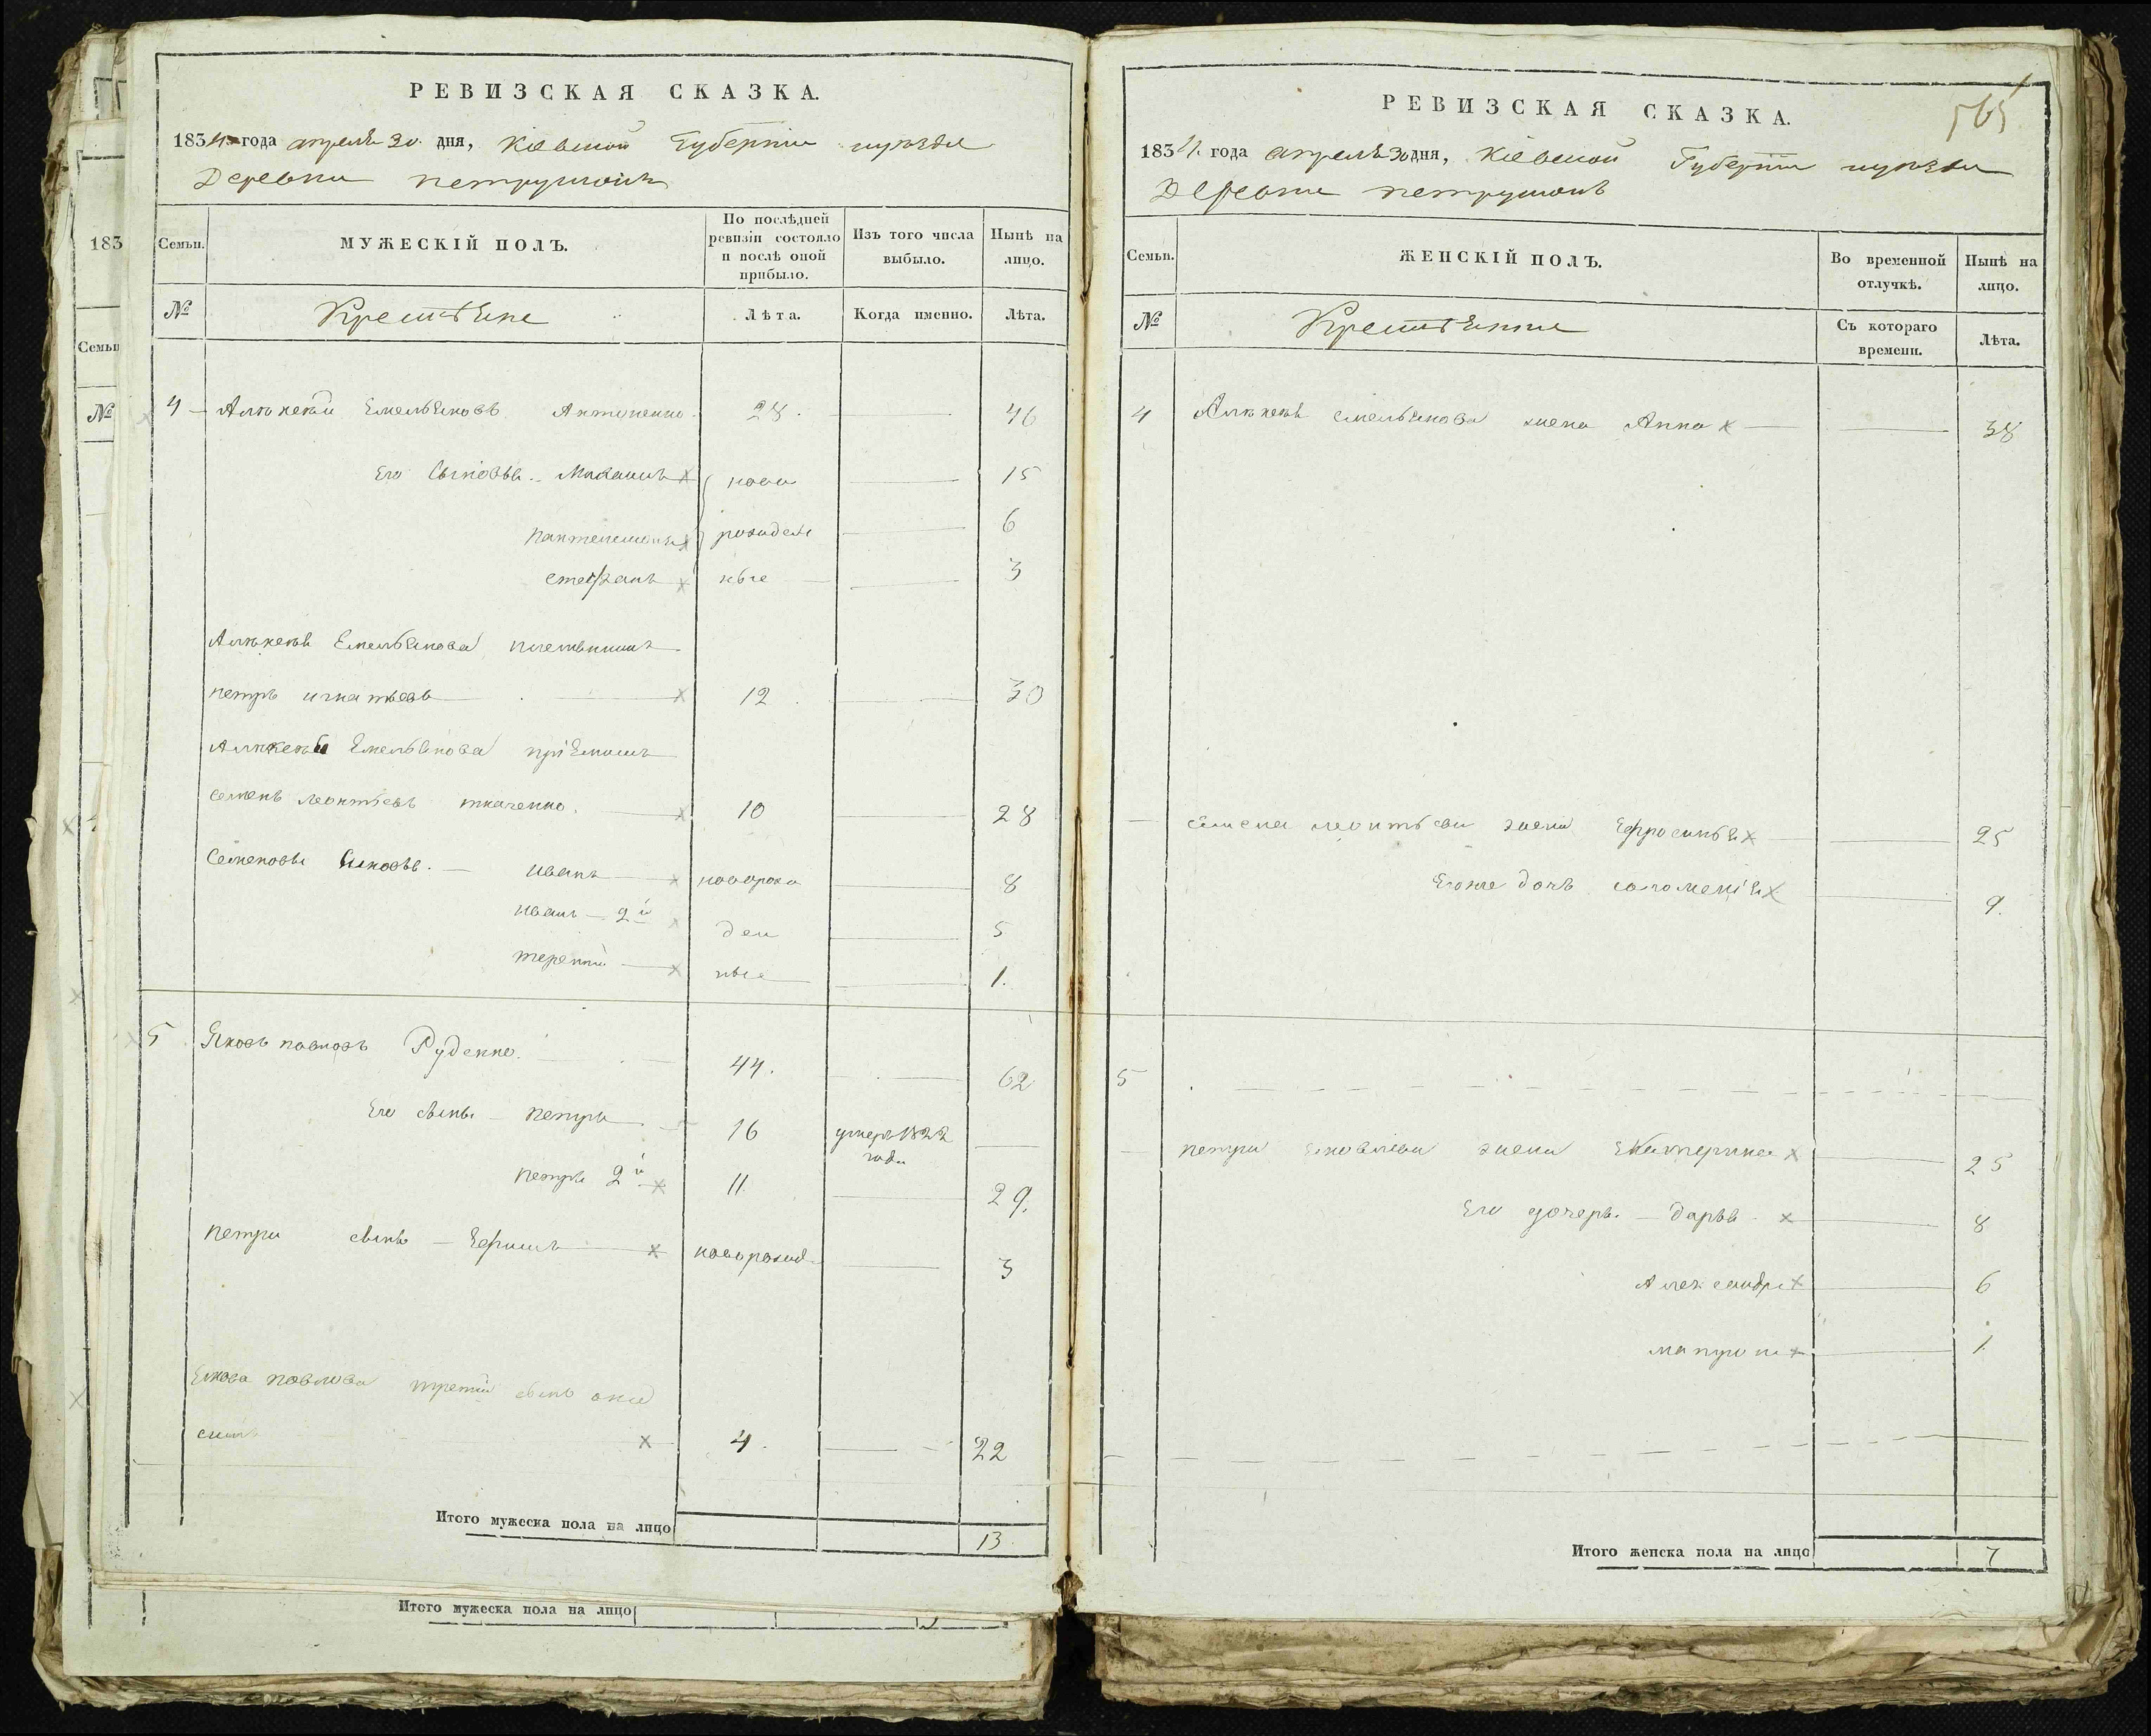 РЕВИЗСКАЯ СКАЗКА.
1834 года апреля 30 дня, Кіевской Губерніи
Деревни петрушокъ
Семьи.
МУЖЕСКІЙ ПОЛЪ.
По послѣдней ревизіи состояло и послѣ оной прибыло.
Изъ того числа выбыло.
Нынѣ на лицо.
№
Крестьяне
Лѣта.
Когда именно.
Лѣта.
4 Емельяновъ Антоненко 28. 46
Его Сыновья 15
пантелемонъ 6
стефанъ 3
новорожденые
Емельянова племянникъ
петръ игнатьевъ 12 30
Емельянова пріемышъ
семенъ леонтьевъ ткаченко 10 28
Семеновы Сыновья. иванъ 8
иванъ 2й 5
терентій 1.
новорожденые
5 Яковъ павловъ Руденко. 44. 62
Его сынъ петръ 16 умеръ 1822 года
петръ 2й 11 29.
петра сынъ новорожд 3
Якова павлова третий сынъ
4. 22
Итого мужеска пола на лицо 13
РЕВИЗСКАЯ СКАЗКА.
565
1834. года апреля 30 дня, Кіевской Губерніи
Деревни петрушокъ
Семьи.
ЖЕНСКІЙ ПОЛЪ.
Во временной отлучкѣ.
Нынѣ на лицо.
№
Крестьянки
Съ котораго времени.
Лѣта.
4 емельянова жена Анна 38
семена леонтьева жена Ефросинья 25
Егоже дочь соломенія 9.
5
петра яковлева жена Екатерина 25
Его дочери дарья 8
Александра 6
матрона 1
Итого женска пола на лицо 7
183
Семьи
№
Итого мужеска пола на лицо